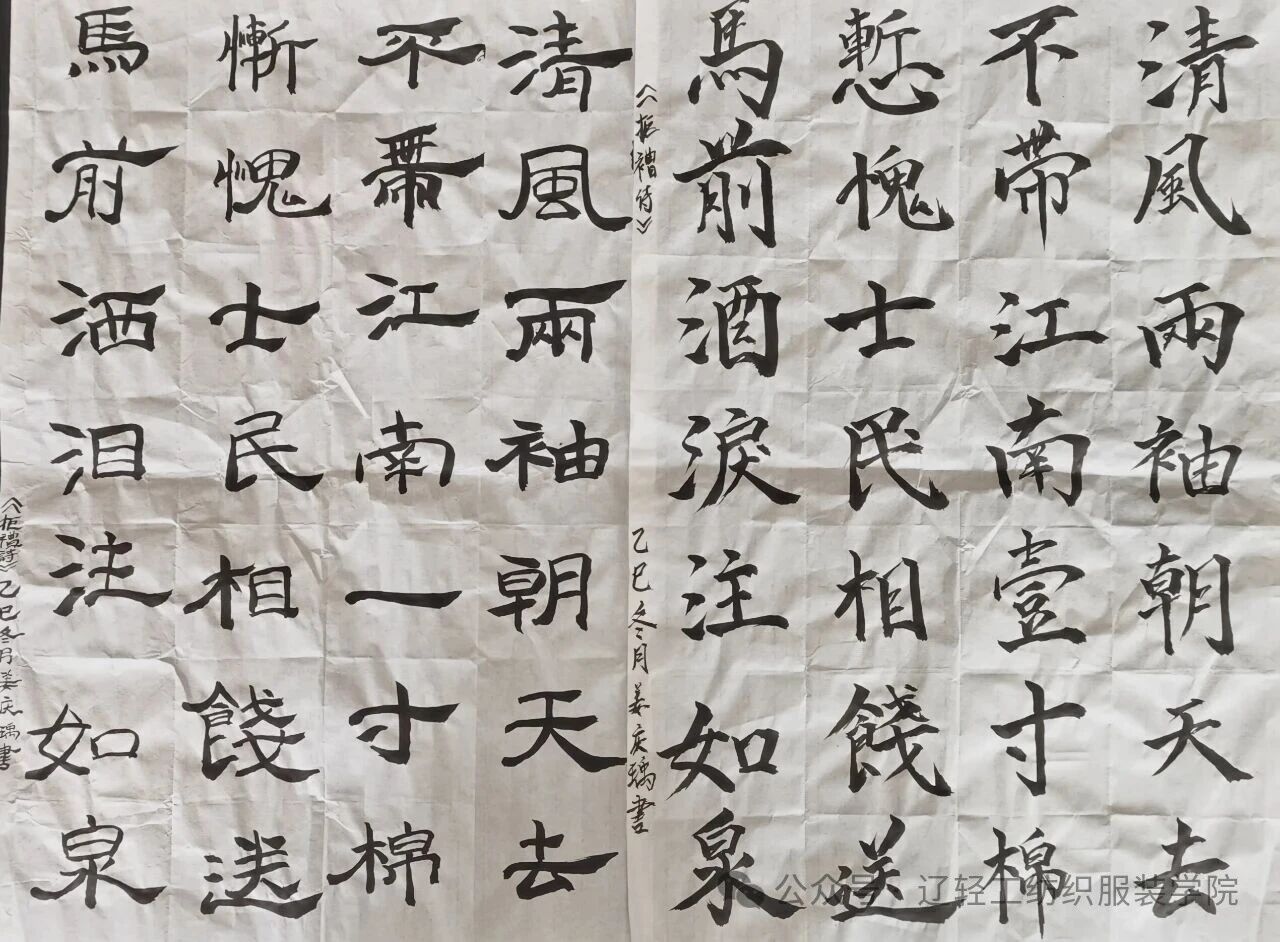 清風兩袖朝天去
不帶江南壹寸棉
慙愧士民相餞送
馬前酒淚注如泉
《拒禮诗》 乙巳冬月姜庆瑀書
清風兩袖朝天去
不帶江南一寸棉
慚愧士民相餞送
馬前洒泪注如泉
《拒禮詩》乙巳冬月姜庆瑀書
公众号·辽轻工纺织服装学院